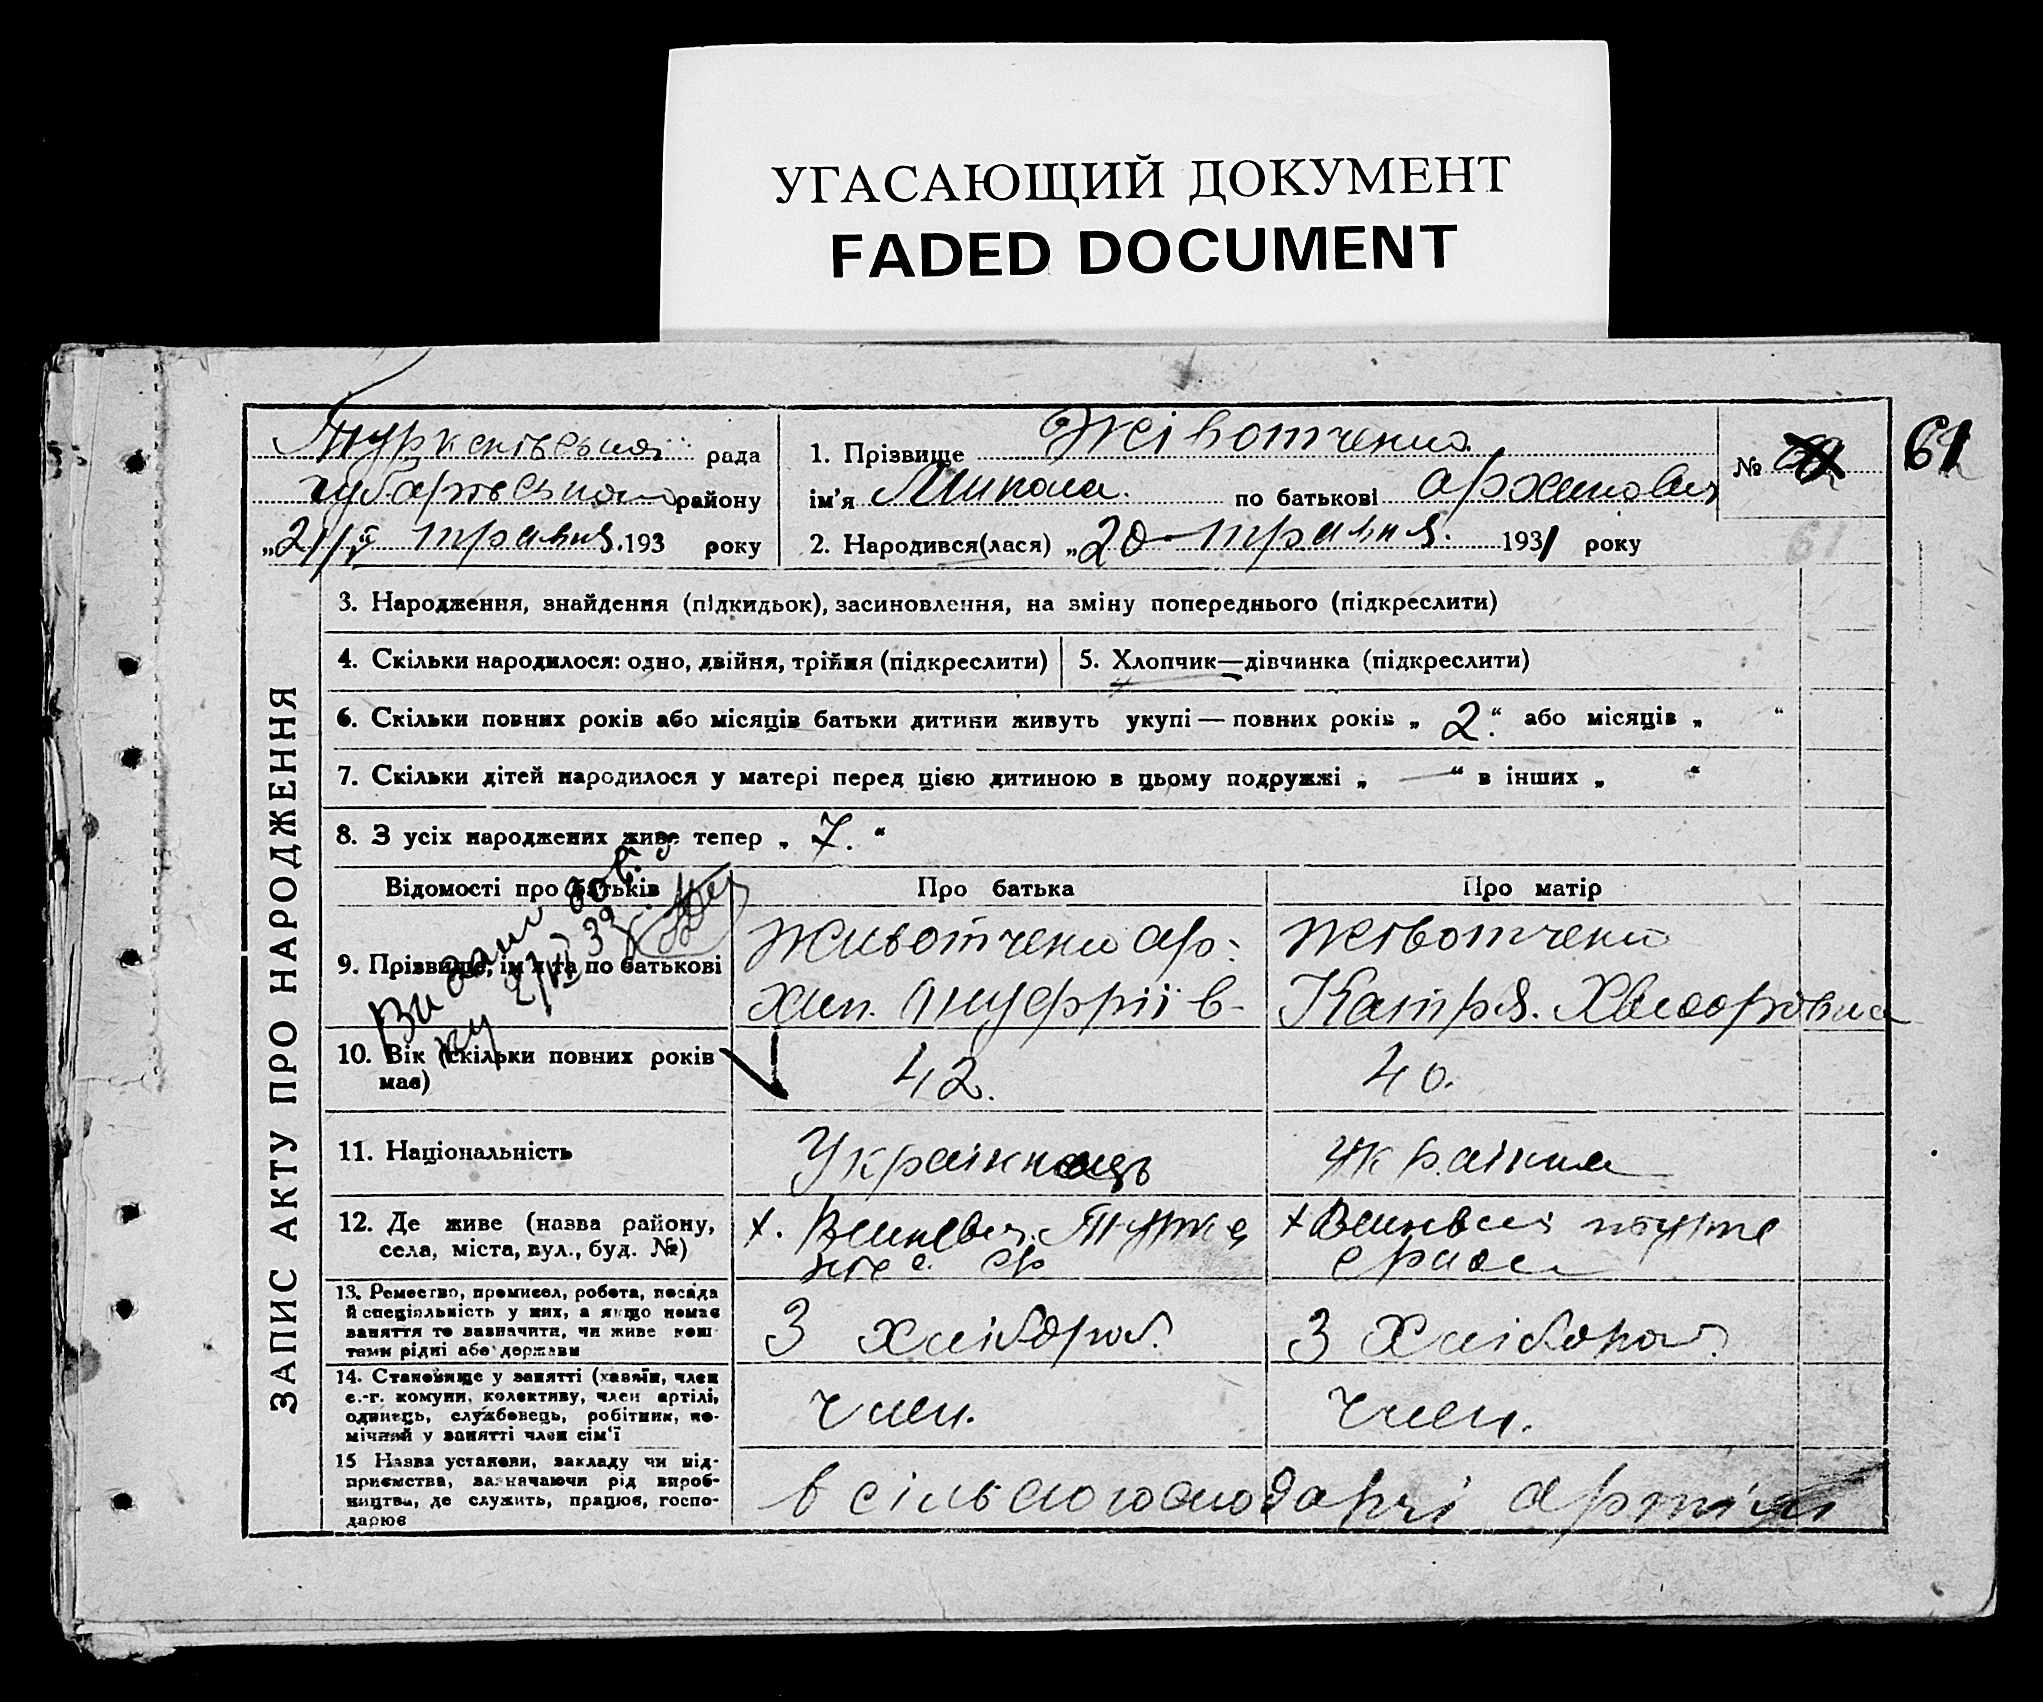 УГАСАЮЩИЙ ДОКУМЕНТ
FADED DOCUMENT
рада
району
„21/V травня 193 року
1. Прізвище Жівотченко
ім’я Микола. по батькові Архипович
2. Народився(лася) „20 травня. 1931 року
№
61
61
ЗАПИС АКТУ ПРО НАРОДЖЕННЯ
3. Народження, знайдення (підкидьок), засиновлення, на зміну попереднього (підкреслити)
4. Скільки народилося: одно, двійня, трійня (підкреслити)
5. Хлопчик—дівчинка (підкреслити)
6. Скільки повних років або місяців батьки дитини живуть укупі — повних років „ 2. “ або місяців „ “
7. Скільки дітей народилося у матері перед цією дитиною в цьому подружжі „ — “ в інших „ “
8. З усіх народжених живе тепер „ 7. “
Відомості про батьків
Про батька
Про матір
9. Прізвище, ім’я та по батькові
Животченко Ар-
хип. Ануфріїв-
Жівотченко
Катря.
10. Вік (скільки повних років
має)
42.
40.
11. Національність
Українець
Українка
12. Де живе (назва району,
села, міста, вул., буд. №)
13. Ремество, промисел, робота, посада
й спеціяльність у них, а якщо немає
заняття то зазначити, чи живе кош-
тами рідні або держави
З хлібороб.
З хлібороб.
14. Становище у занятті (хазяїн, член
с.-г. комуни, колективу, член артілі,
одинець, службовець, робітник, по-
мічний у занятті член сім’ї
член.
член.
15 Назва установи, закладу чи під-
приємства, зазначаючи рід вироб-
ництва, де служить, працює, госпо-
дарює
в сільськогосподарчі артілі